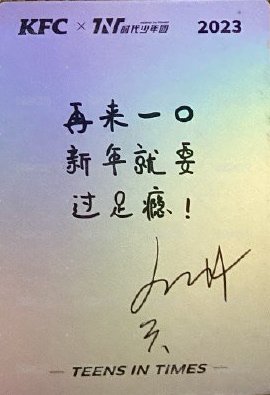 KFC × TNT时代少年团 2023
再来一口
新年就要
过足瘾！
TEENS IN TIMES